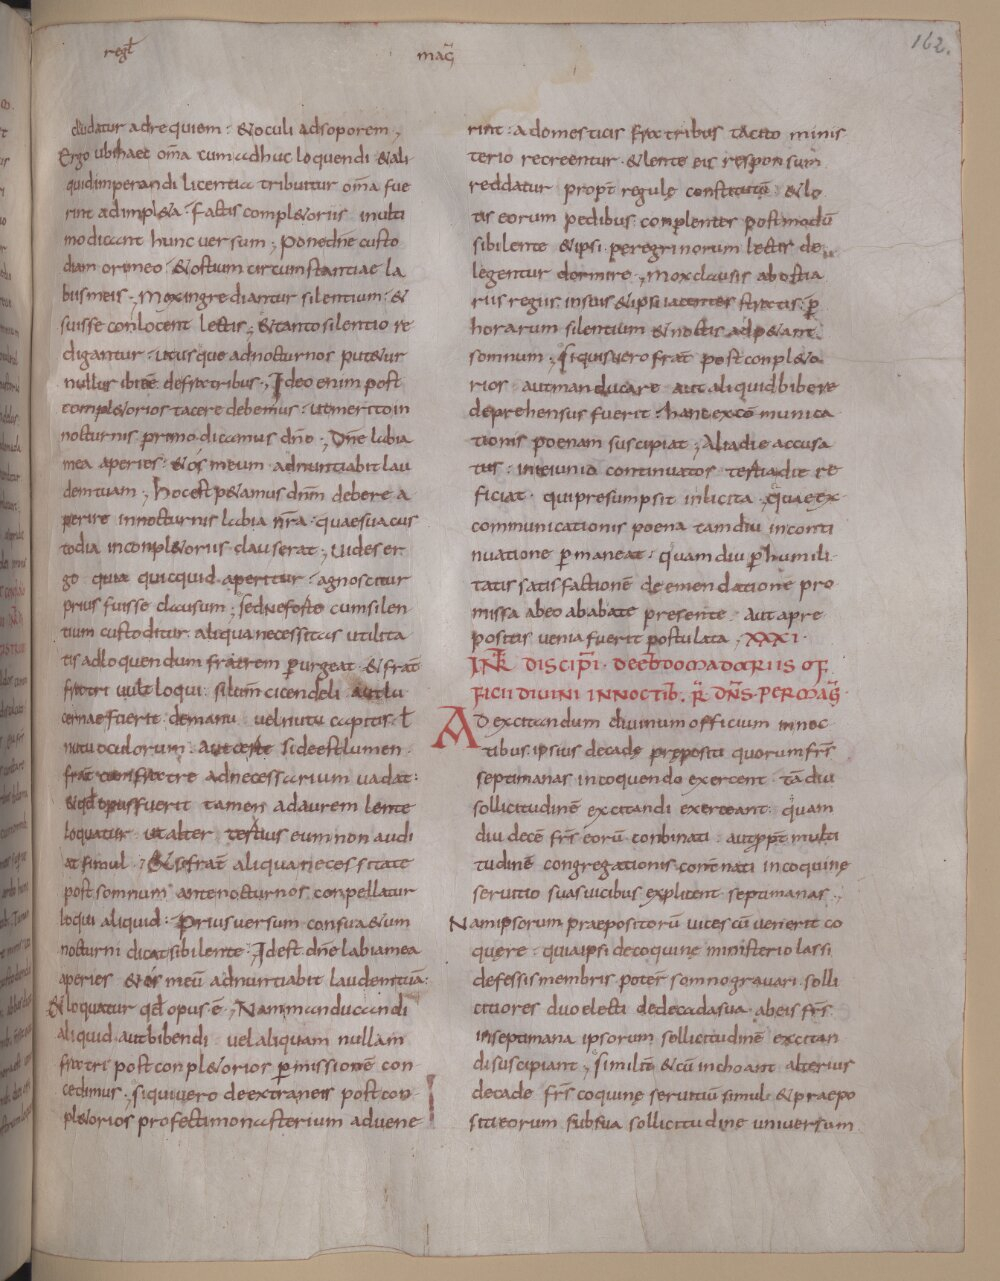 regl
mag
162.
cludatur ad requiem : & oculi ad soporem ;
Ergo ubi haec oma cum adhuc loquendi & ali
quid imperandi licentia tribuitur oma fue
rint ad imple&a · Factis completoriis in ulti
mo dicant hunc versum ; Pone dne custo
diam ori meo · & ostium circumstantiae la
bus meis ; Mox ingrediantur silentium · &
suisse conlocent lectis ; & tanto silentio re
digantur · ut usque ad nocturnos put&ur
nullus ibi eē de fratribus ; Ideo enim post
compl&orios tacere debemus · ut merito in
nocturnis primo dicamus dno ; Dne labia
mea aperies · & os meum adnuntiabit lau
dem tuam ; hoc est p&amus dnm debere a
perire in nocturnis labia nra · quae sua cus
todia in conpl&oriis clauserat ; Vides er
go quia quicquid aperitur · agnoscitur
prius fuisse clausum ; sed ne forte cum silen
tium custoditur aliqua necessitas utilita
tis ad loquendum fraterem purgeat · & frat
fratri vult loqui · si lum cicendeli aut lu
cernae fuerit de manu vel nutu capitis l
nutu oculorum · Si deest lumen ·
frat cum fratre ad necessarium vadat :
& qd opus fuerit tamen ad aurem lente
loquatur · ut alter tertius eum non audi
at simul ; & si frat aliqua necessitate
post somnum ante nocturnos conpellatur
loqui aliquid · Prius versum consuetum
nocturni dicat sibi lente · Id est dne labia mea
aperies & os meū adnuntiabit laudem tuā :
& loquatur qd opus ē ; Nam manducandi
aliquid aut bibendi vel aliquam nullam
fratri post conpl&orios pmissionē con
cedimus ; si qui vero de extraneis post con
pl&orios profecti monasterium advene
rint · a domesticis fratribus tacito minis
terio recreentur · & lente eis responsum
reddatur propt regulę constitutū & lo
tis eorum pedibus conplentes postmodū
sibi lente & ipsi peregrinorum lectis de
legentur dormire ; mox clausis ab ostia
riis regiis intus & ipsi iacentes stratis · p
horarum silentium & noctis adp&ant
somnum ; Si quis vero frat post conpl&o
rios aut manducare aut aliquid bibere
deprehensus fuerit · hanc excōmunica
tionis poenam suscipiat ; Alia die accusa
tus · in ieiunio continuatos tertia die re
ficiat · qui presumpsit inlicita · Quae ex
communicationis poena tamdiu in conti
nuatione pmaneat · quamdiu p humili
tatis satisfactionē de emendatione pro
missa ab eo ababate presente aut a pre
positis venia fuerit postulata ; XXXI ·
INR DISCIPI · DE EBDOMADARIIS OF
FICII DIVINI IN NOCTIB · R DNS PER MAG
Ad excitandum divinum officium in noc
tibus ipsius decadę prępositi quorum frs
septimanas in coquendo exercent · tādiu
sollicitudinē excitandi exerceant quam
diu decē frs eorū conbinati · aut propt multi
tudinē congregationis conternati in coquinę
servitio suas vicibus explicent septimanas ;
Nam ipsorum praepositorū vices cū venerit co
quere · quia ipsi de coquinę ministerio lassi
defessis membris potēn somno gravari solli
citiores duo electi de decada sua ab eis frs
in septimana ipsorum sollicitudinē excitan
di suscipiant ; similit & cū inchoant alterius
decade frs coquinę servitiū simul · & praepo
siti eorum sub sua sollicitudine universum